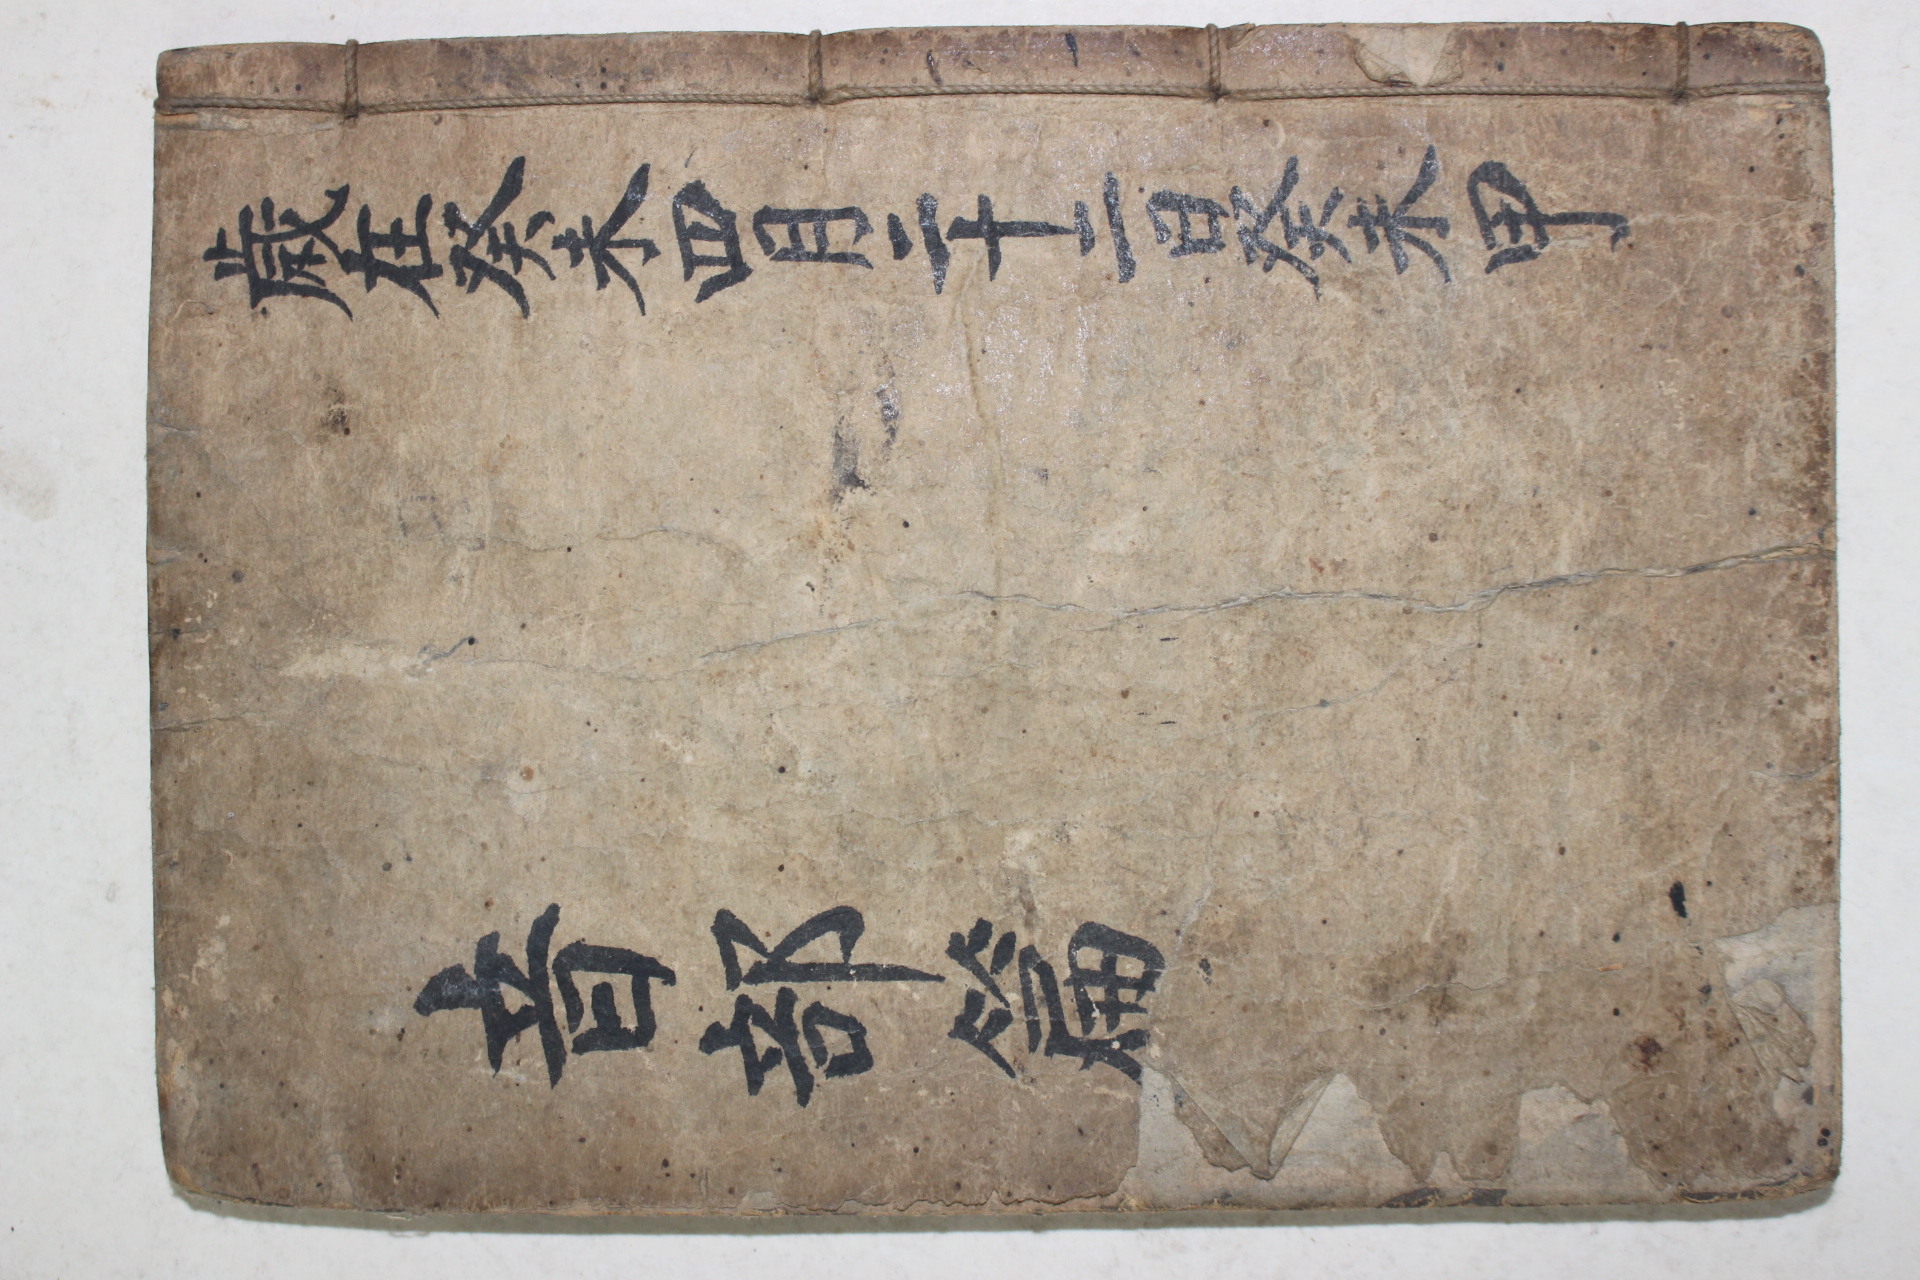 歲在癸未四月二十二日癸未甲
音部篇